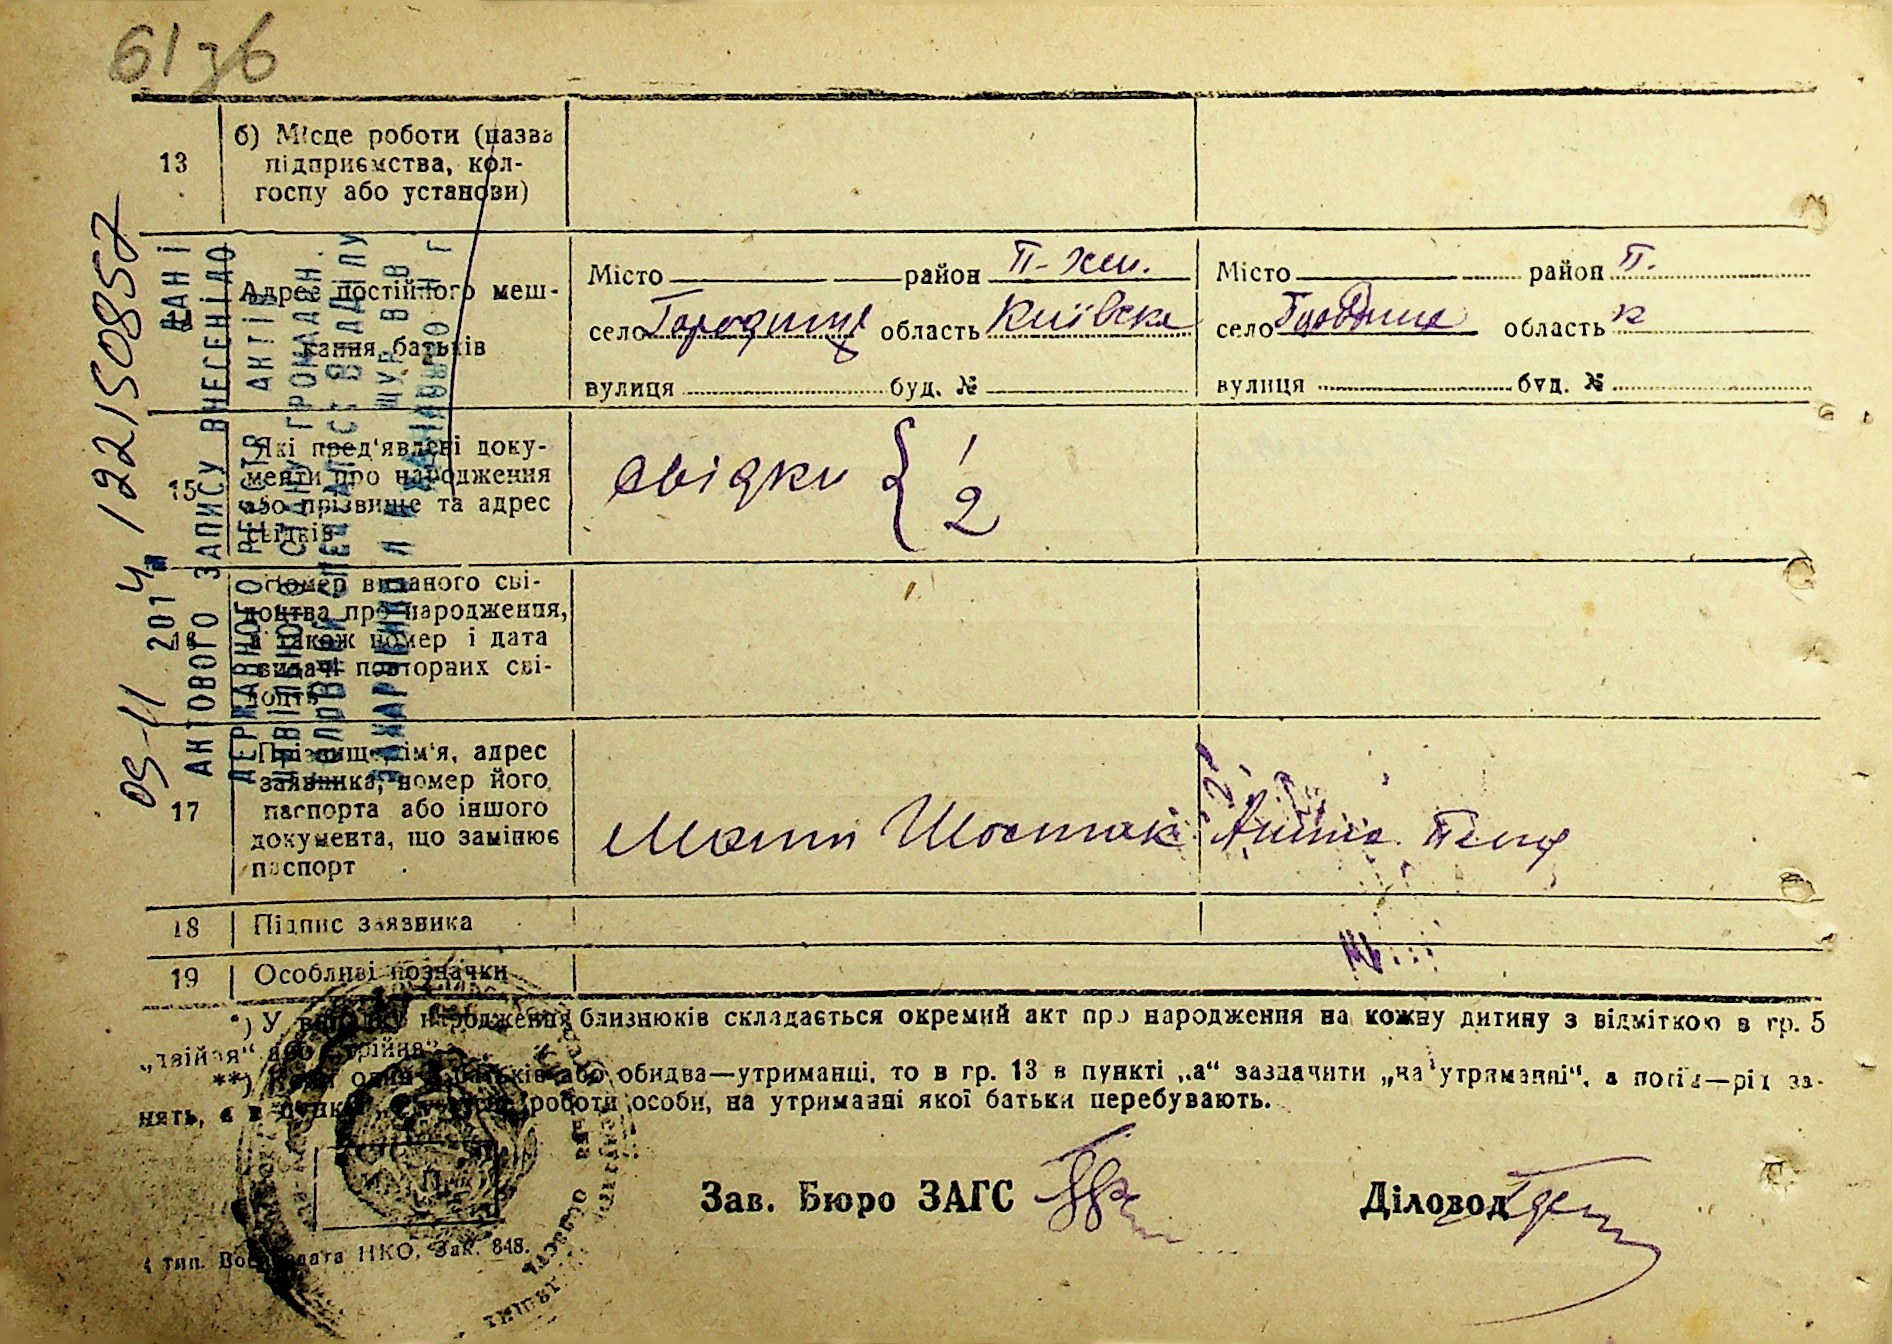 61зб
13
б) Місце роботи (назва
підприємства, кол-
госпу або установи)
Адрес постійного меш-
кання батьків
Місто район П-Хм.
село Городище область Київська
вулиця буд. №
Місто район П.
село Городище область К
вулиця буд. №
15
Які пред'явлені доку-
менти про народження
або прізвище та адрес
свідків
свідки { 1
2
16
Номер виданого сві-
доцтва про народження,
а також номер і дата
видачі повторних сві-
доцтв
17
Прізвище, ім'я, адрес
заявника, номер його
паспорта або іншого
документа, що замінює
паспорт
Мати Шостак
18
Підпис заявника
19
Особливі позначки
*) У випадку народження близнюків складається окремий акт про народження на кожну дитину з відміткою в гр. 5
„двійня“ або „трійня“.
**) Коли один з батьків або обидва—утриманці, то в гр. 13 в пункті „а“ зазначити „на утриманні“, а потім—рід за-
нять, а в пункті роботи особи, на утриманні якої батьки перебувають.
Зав. Бюро ЗАГС
Діловод
М. П.
4 тип. Воениздата НКО, Зак. 848.
ДАНІ
АКТОВОГО ЗАПИСУ ВНЕСЕНІ ДО
ДЕРЖАВНОГО РЕЄСТР АКТІВ
ЦИВІЛЬНОГО СТАНУ ГРОМАДЯН.
05-11 2014 12215085